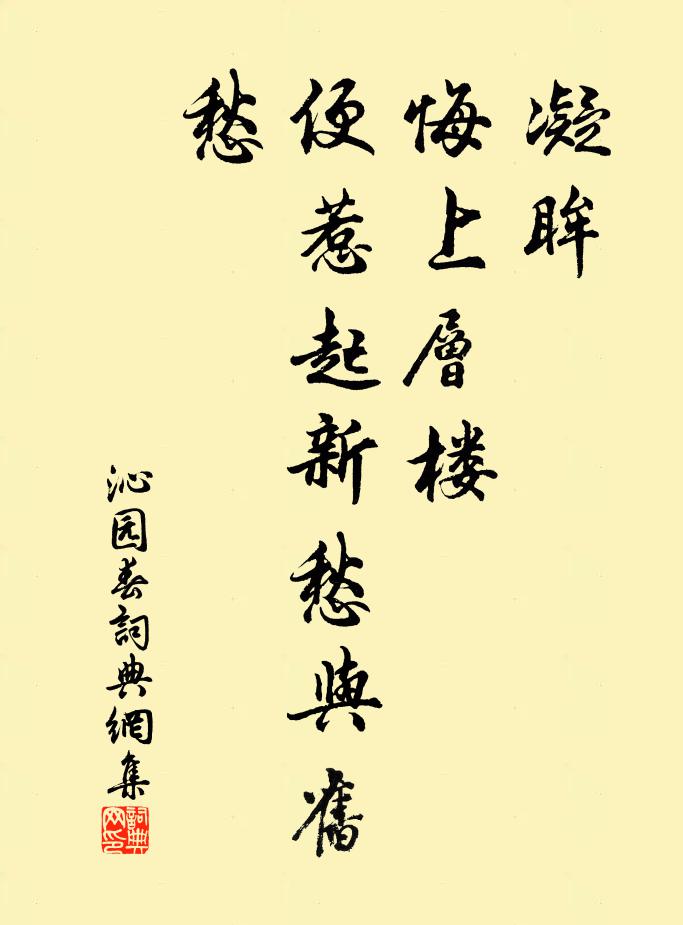 凝眸
悔上層楼
便惹起新愁與舊
愁
沁园春詞典網集
詞典
网印